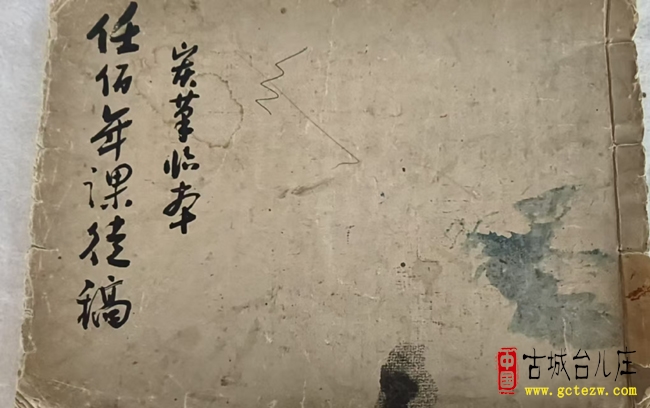 任佰年课徒稿
炭笔临本
中國
古城台儿庄
www.gctezw.com